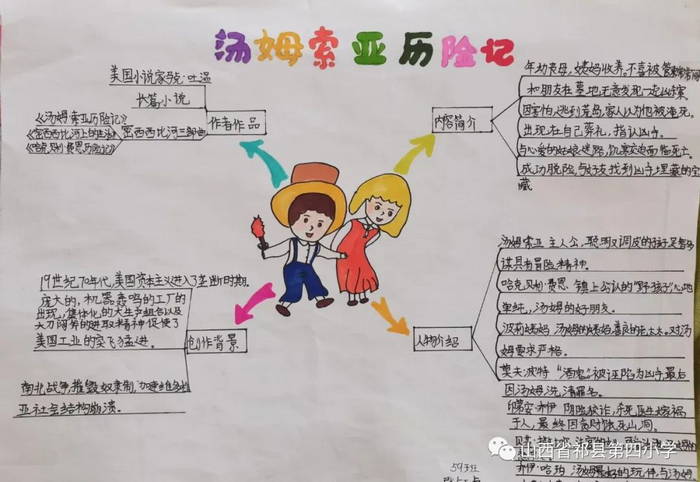 汤姆索亚历险记
美国小说家马克·吐温
长篇小说
《汤姆索亚历险记》
《密西西比河上的生活》
《哈克贝利·费恩历险记》
密西西比河三部曲
作者作品
内容简介
年幼丧母,姨妈收养。不喜被管
和朋友在墓地无意发现一起凶案
因害怕,逃到荒岛,家人以为他被淹死。
出现在自己葬礼,指认凶手。
与心爱的姑娘迷路,饥寒交迫面临死亡
成功脱险,与好友找到凶手埋藏的宝
藏
19世纪70年代,美国资本主义进入了垄断时期。
庞大的,机器轰鸣的工厂的
出现,集体化的大生产组合以及
大刀阔斧的进取精神促使了
美国工业的突飞猛进。
南北战争摧毁奴隶制,加速维多利
亚社会结构崩溃。
创作背景
人物介绍
汤姆索亚 主人公,聪明又调皮的孩子足智多
谋具有冒险精神。
哈克贝利·费恩 镇上公认的"野孩子"心地
单纯,汤姆的好朋友。
波莉姨妈 汤姆的姨妈善良的老太太,对汤
姆要求严格。
莫夫·波特 "酒鬼"被诬陷为凶手,最后
因汤姆洗清罪名。
印第安·乔伊 阴险狡诈,杀死医生嫁祸
于人,最终因贪财饿死山洞。
乔伊·哈珀 汤姆最好的玩伴,与汤姆
593班
山西省祁县第四小学